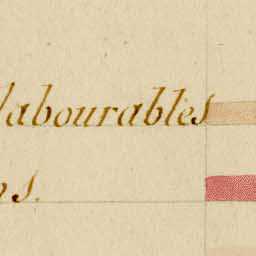 labourables
s.